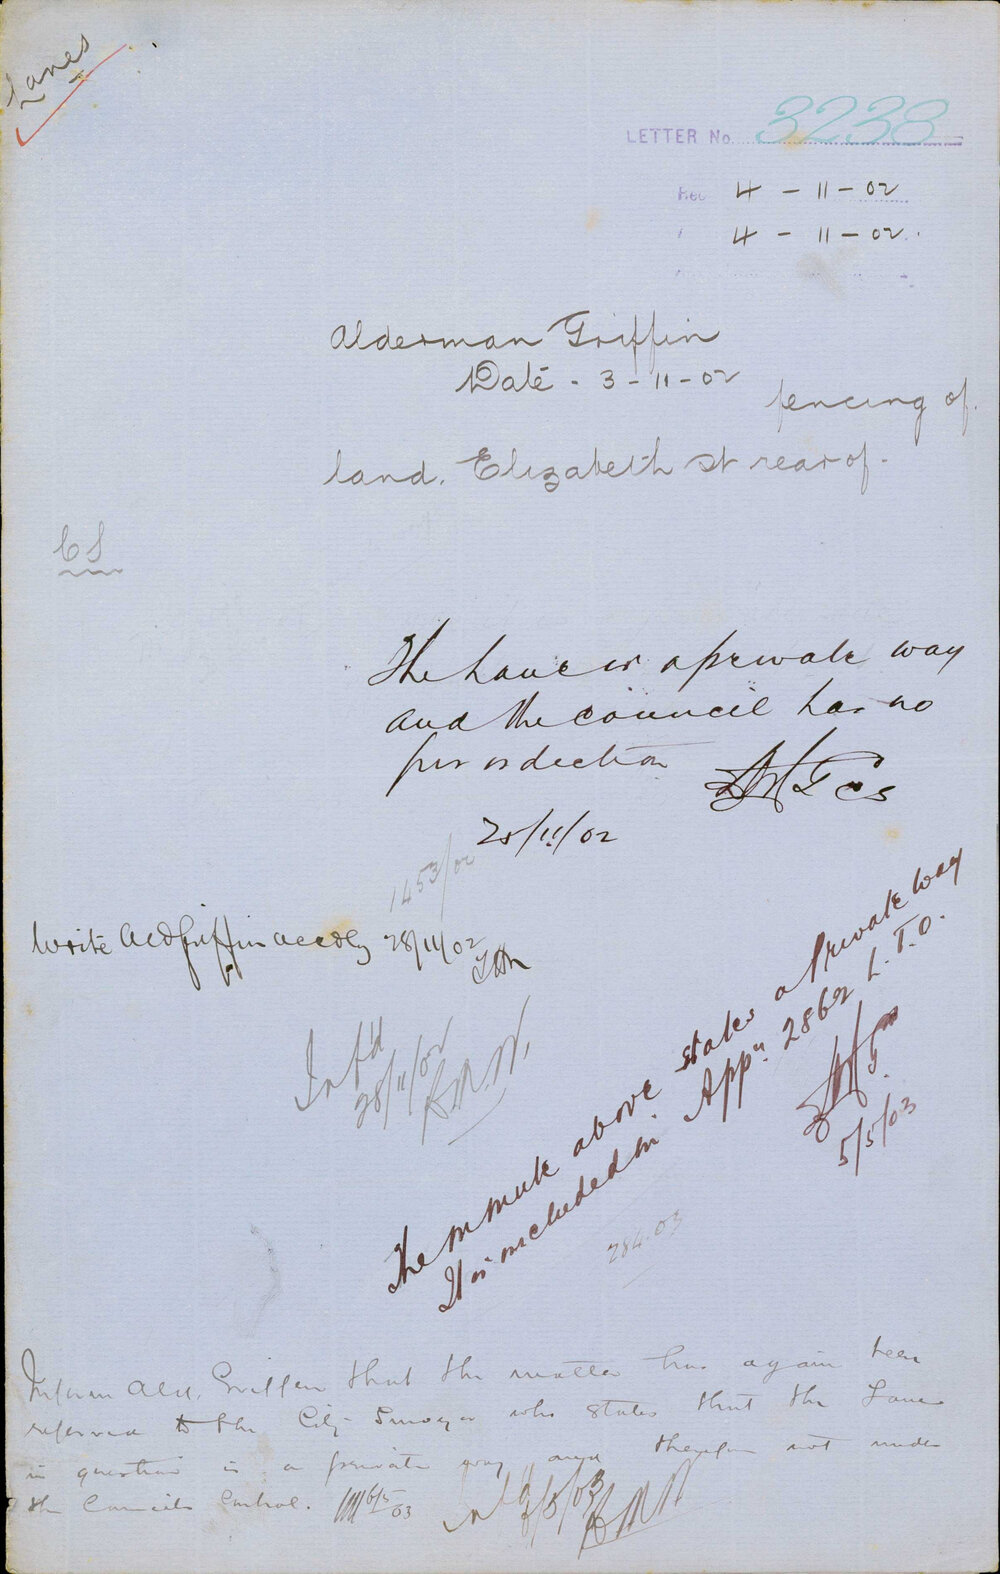 Lanes
LETTER No. 3238
Rec 4 - 11 - 02
4 - 11 - 02.
Alderman Griffin
Date - 3 - 11 - 02
fencing of
land. Elizabeth st rear of -
CS
The Lane is a private way
and the council has no
jurisdiction
CS
25/11/02
1453/02
Write Ald Griffin accdly 28/11/02
Infd
28/11/02
The minute above states a private way
It is included in Appn 2862 L.T.O.
5/5/03
284.03
Inform Ald. Griffen that the matter has again been
referred to the City Surveyor who states that the Lane
in question is a private way and therefore not under
the Councils Control. 6/5/03
Infd 6/5/03